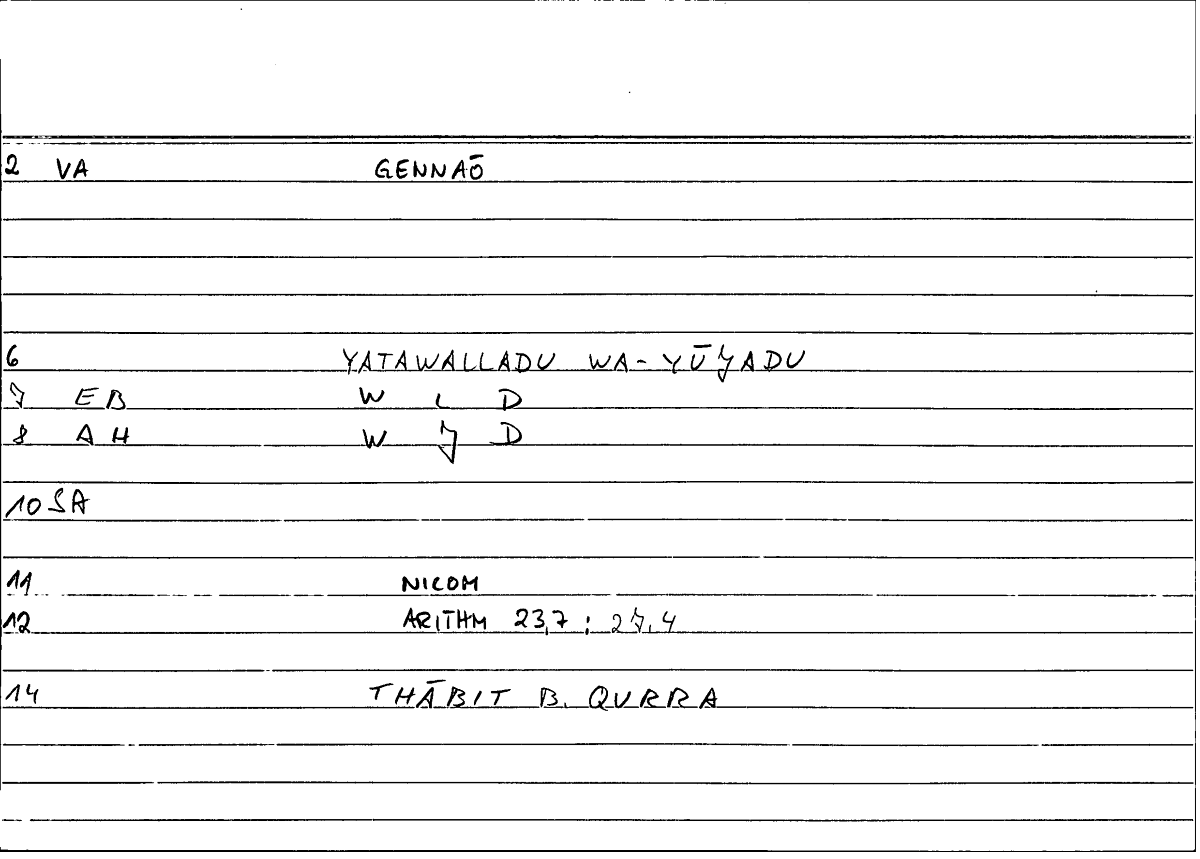 2 VA GENNAŌ
6 YATAWALLADU WA-YŪJADU
7 EB W L D
8 AH W J D
10 SA
11 NICOM
12 ARITHM 23,7 : 27,4
14 THĀBIT B. QURRA